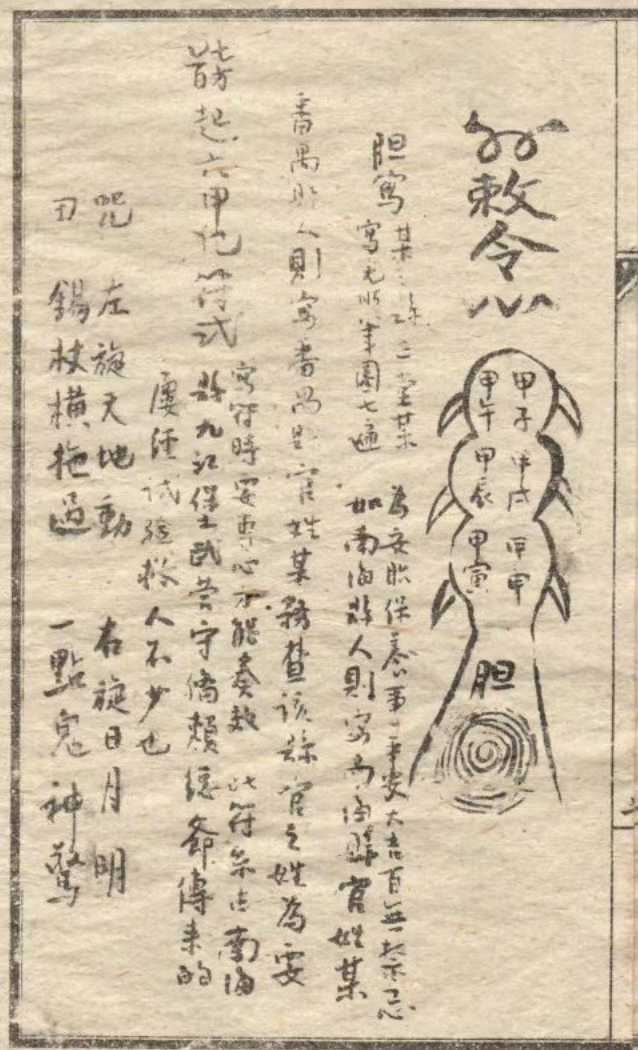 敕令
甲子 甲午
甲戌 甲辰
甲申 甲寅
胆
胆寫某某縣正堂某 為安胎保養事 平安大吉百無禁忌
寫完順筆圈七遍 如南海縣人則寫南海縣官姓某
番禺縣人則寫番禺縣官姓某務查該縣官之姓為要
起六甲化符式 寫符時要專心方能奏效 此符系由南海
縣九江保土武營守備賴總爺傳來的
屢經試驗救人不少也
咒 左旋天地動 右旋日月明
錫杖橫拖過 一點鬼神驚